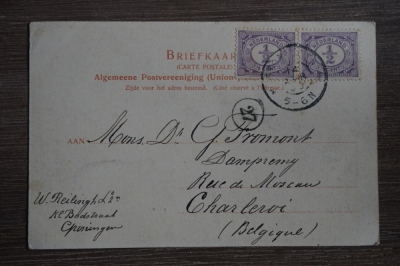 BRIEFKAAR
(CARTE POSTALE)
Algemeene Postvereeniging (Union
Zijde voor het adres bestemd. (Côté réservé à l'adresse
NEDERLAND
½
NEDERLAND
½
5-6N
27
AAN Mons. Dr. G. Fromont
Dampremy
Rue de Moscou
Charleroi
(Belgique)
W. Reilingh
Groningen